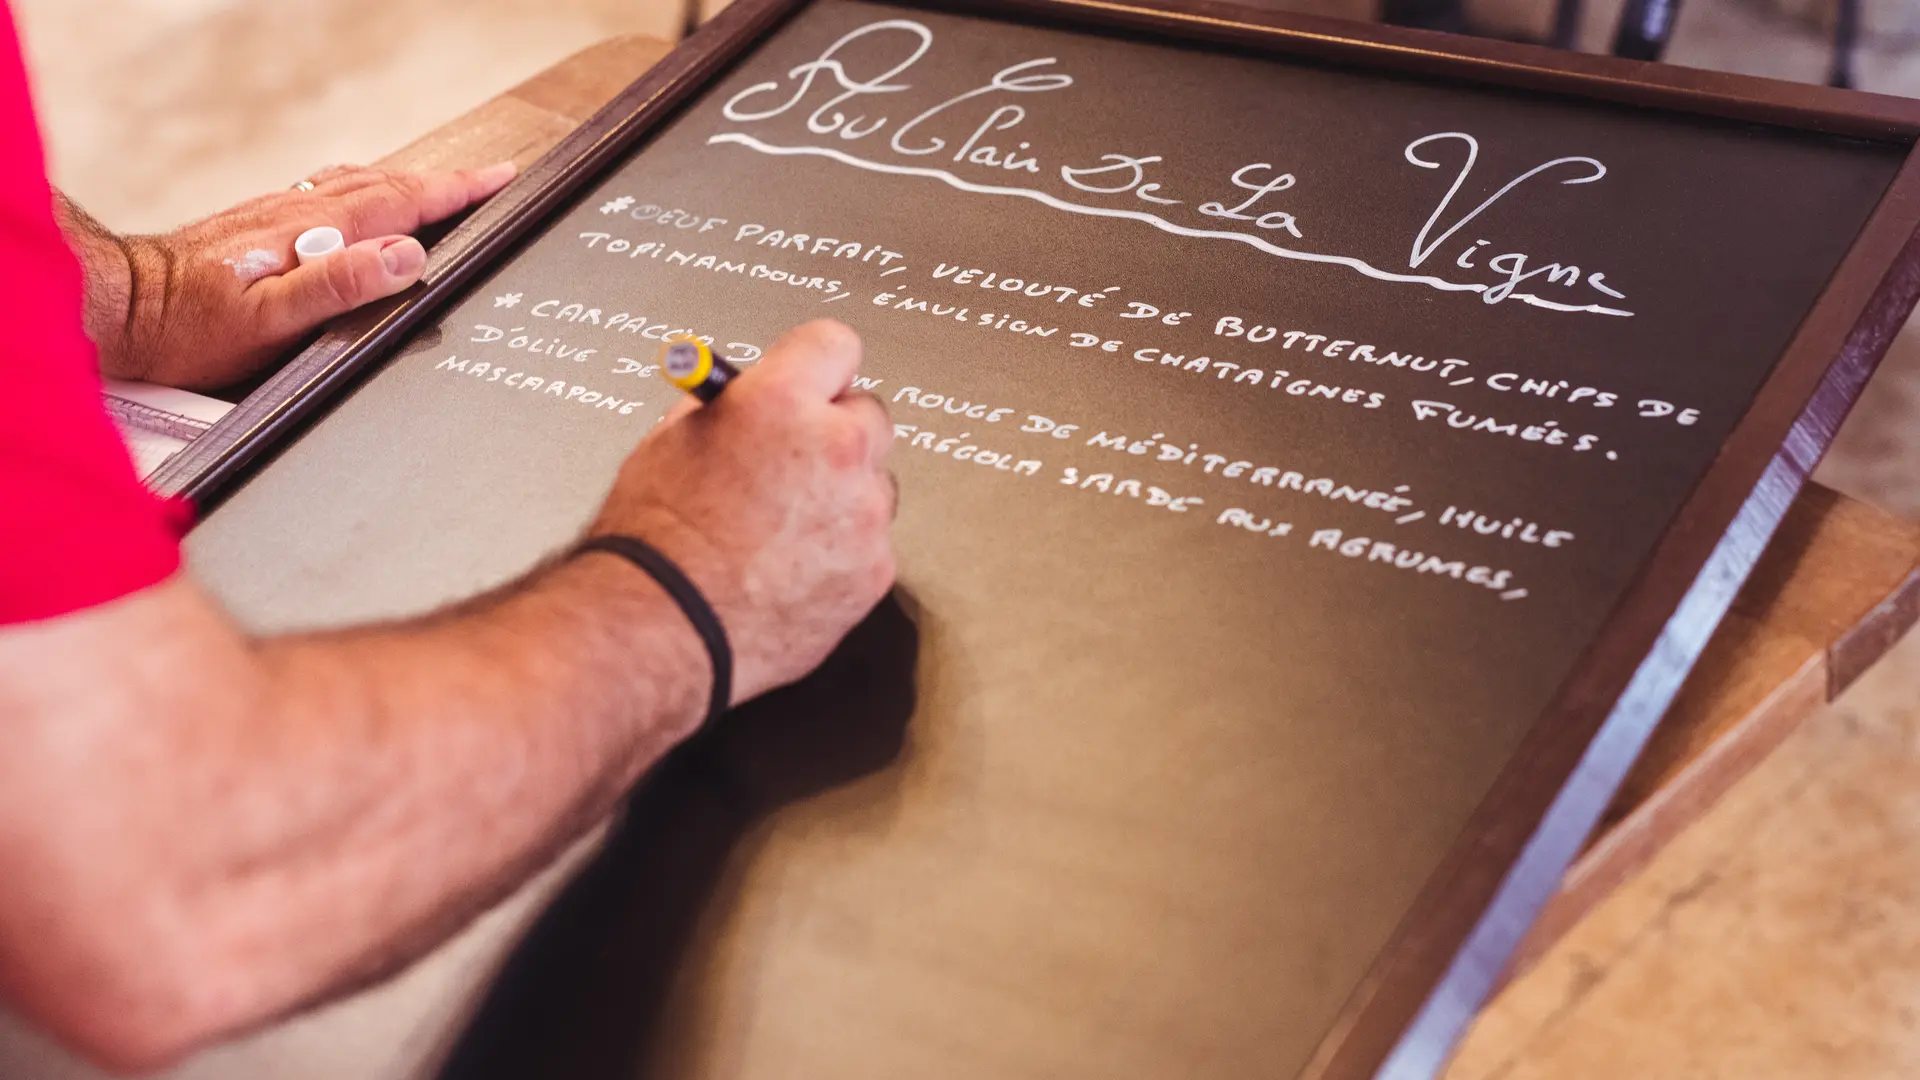 Au Clair De La Vigne
* OEUF PARFAIT, VELOUTÉ DE BUTTERNUT, CHIPS DE
TOPINAMBOURS, ÉMULSION DE CHATAIGNES FUMÉES.
* CARPACCIO ROUGE DE MÉDITERRANEÉ, HUILE
D'OLIVE DE FRÉGOLA SARDE AUX AGRUMES,
MASCARPONE